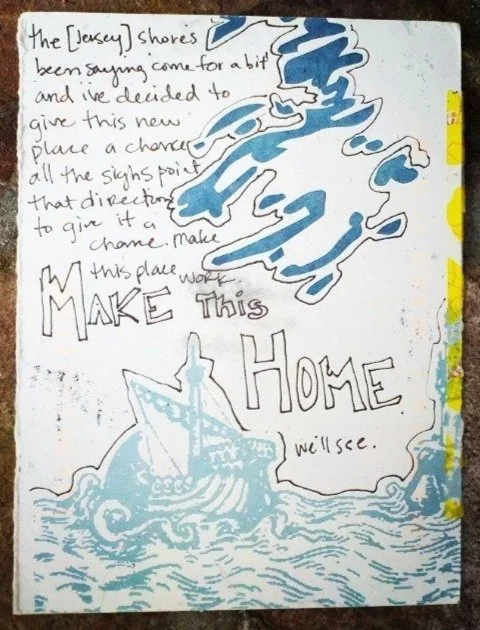 the [Jersey] shores
been saying come for a bit
and i've decided to
give this new
place a chance
all the sighs point
that direction
to give it a
chance. Make
this place work
MAKE This
HOME
we'll see.